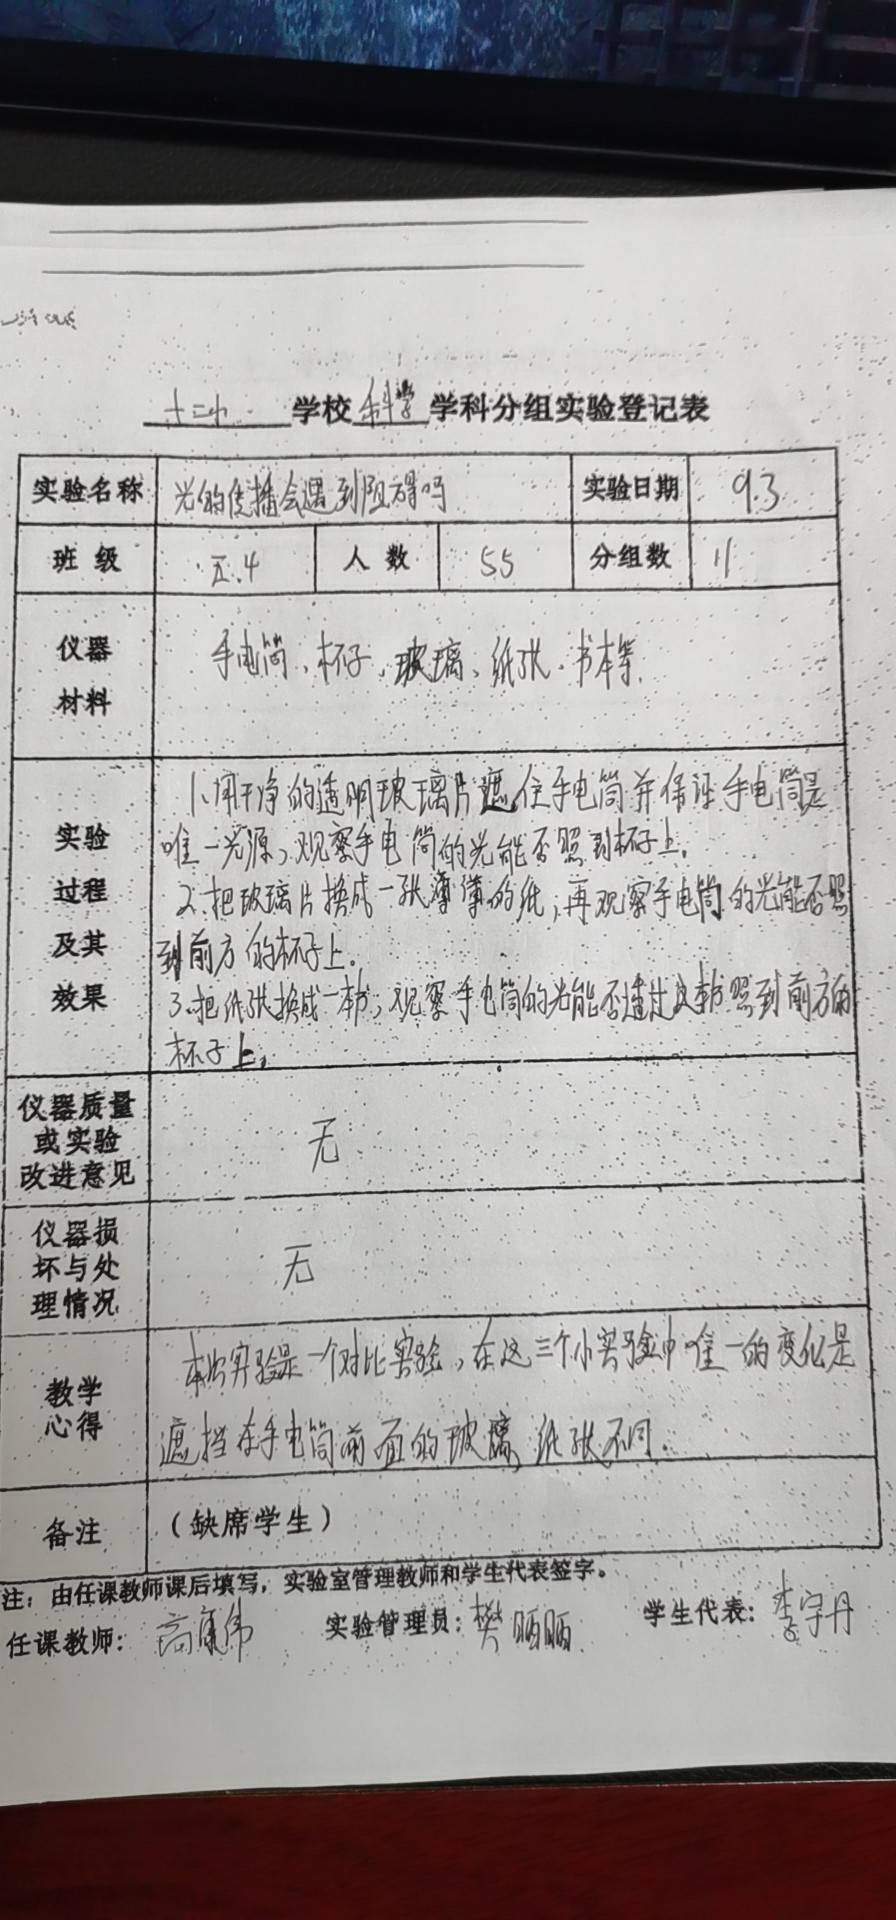 十二小 学校 科学 学科分组实验登记表
实验名称 光的传播会遇到阻碍吗 实验日期 9.3
班 级 五.4 人 数 55 分组数 11
仪器
材料
手电筒、杯子、玻璃、纸张、书本等.
实验
过程
及其
效果
1、用干净的透明玻璃片遮住手电筒并保证手电筒是
唯一光源,观察手电筒的光能否照到杯子上。
2.把玻璃片换成一张薄薄的纸,再观察手电筒的光能否照
到前方的杯子上。
3.把纸张换成一本书,观察手电筒的光能否透过这本书照到前方的
杯子上。
仪器质量
或实验
改进意见
无
仪器损
坏与处
理情况
无
教学
心得
本次实验是一个对比实验,在这三个小实验中唯一的变化是
遮挡在手电筒前面的玻璃、纸张不同.
备注 (缺席学生)
注:由任课教师课后填写,实验室管理教师和学生代表签字。
任课教师: 高 伟 实验管理员: 樊 学生代表: 李宇丹